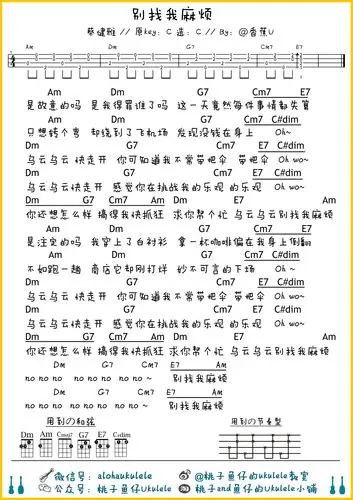 别找我麻烦
蔡健雅 // 原key：C 选：C // By：@香蕉U
Am Dm G7 Cm7 E7
Am Dm G7 Cm7 E7
是故意的吗 是我得罪谁了吗 这一天竟然每件事情都失算
Am Dm G7 Cm7 C#dim
只想转个弯 却绕到了飞机场 发现没钱在身上 Oh~
Dm G7 Cm7 E7 Am
乌云乌云 快走开 你可知道我不常带把伞 带把伞 Oh wo~
Dm G7 Cm7 C#dim
乌云乌云 快走开 感觉你在挑战我的乐观 的乐观 Oh wo~
Dm G7 Cm7 Am Dm E7 Am
你还想怎么样 搞得我快抓狂 求你帮个忙 乌云乌云别找我麻烦
Am Dm G7 Cm7 E7
是注定的吗 我穿上了白衬衫 拿一杯咖啡偏在我身上倒翻
Am Dm G7 Cm7 C#dim
不如跑一趟 商店它却刚打烊 妙不可言的下场 Oh~
Dm G7 Cm7 E7 Am
乌云乌云 快走开 你可知道我不常带把伞 带把伞 Oh wo~
Dm G7 Cm7 C#dim
乌云乌云 快走开 感觉你在挑战我的乐观 的乐观 Oh wo~
Dm G7 Cm7 Am Dm E7 Am
你还想怎么样 搞得我快抓狂 求你帮个忙 乌云乌云别找我麻烦
Dm G7 Cm7 E7 Am
no no no no no no no~ 别找我麻烦
Dm G7 Cm7 E7 Am
no no no no no no no~ 别找我麻烦
用到的和弦 用到的节奏型
Dm Am Cmaj7 G7 E7 C#dim
微信号：alohaukulele @桃子鱼仔的ukulele教室
公众号：桃子鱼仔Ukulele 桃子and鱼仔的Ukulele小铺